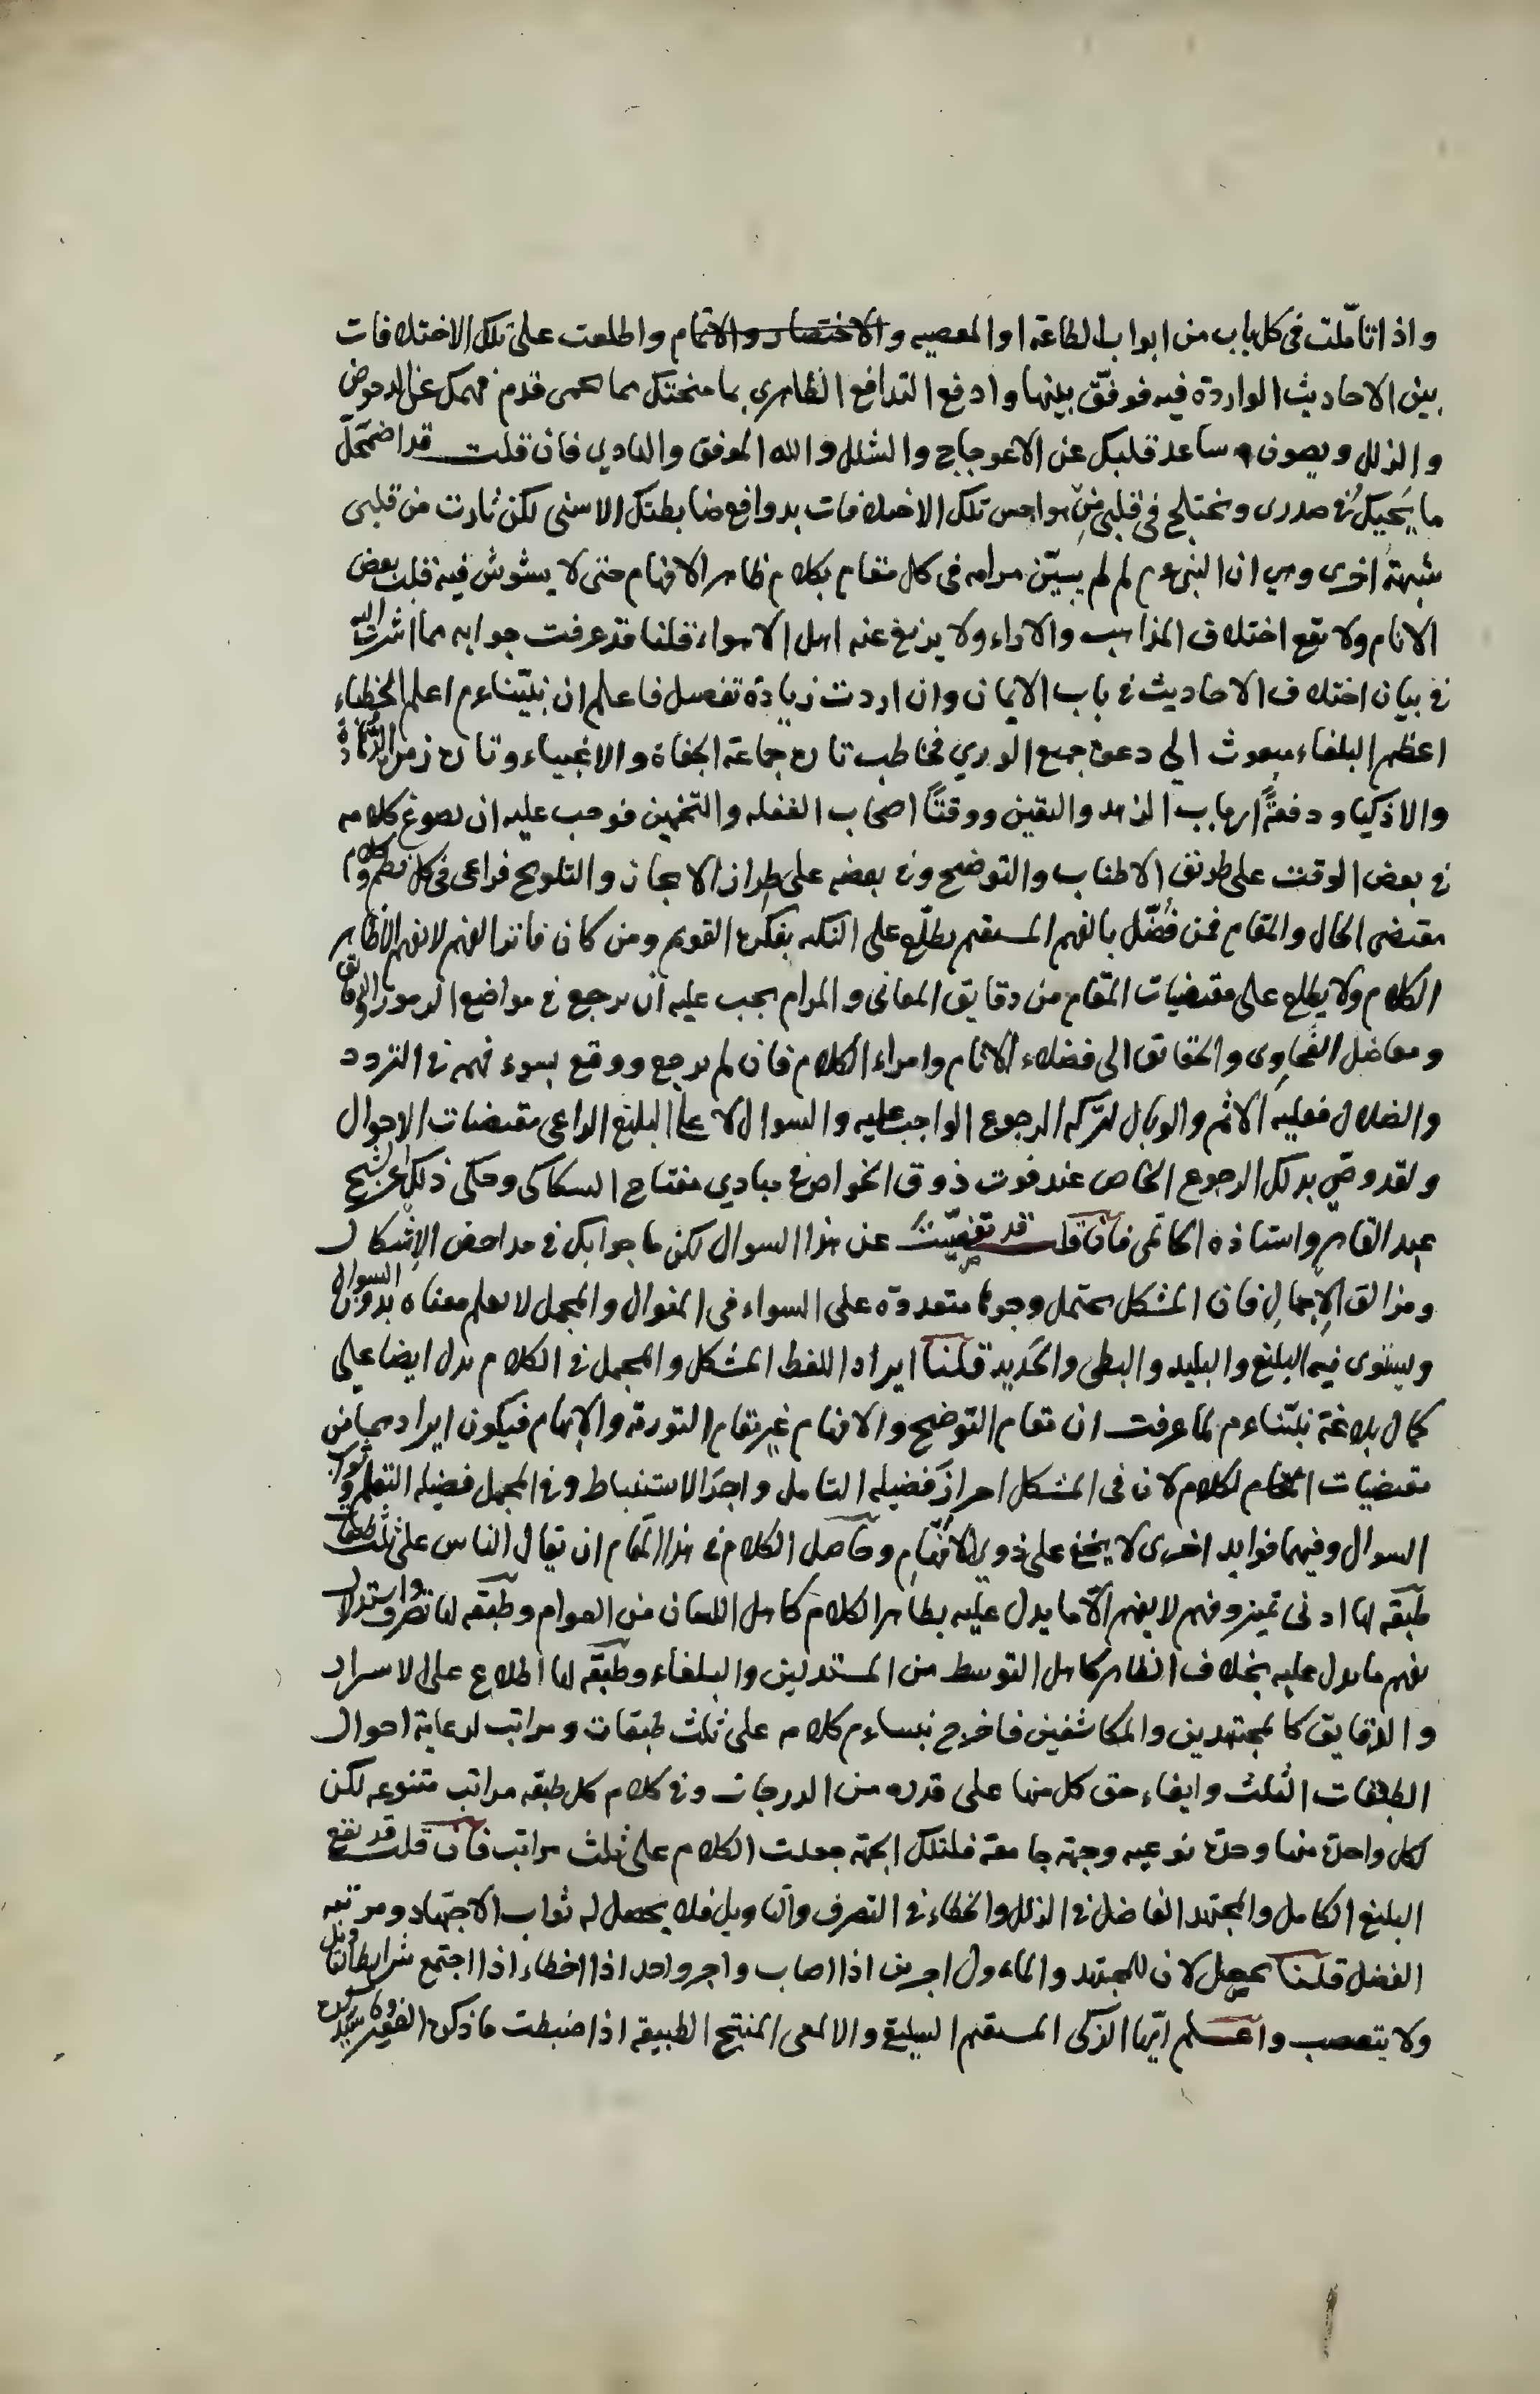 واذا تاملت فى كل باب من ابواب الطاعة او المعصيه والاختصار والاتمام واطلعت على تلك الاختلافات
بين الاحاديث الواردة فيه فوفّق بينها وادفع التدافع الظاهرى بما منحتك مما يحمى قدم فهمك عن الدحوض
والزلل ويصون ساعد قلبك عن الاعوجاج والشلل والله الموفق والهادي فان قلت قد اضمحلّ
ما يَحيك فى صدرى ويختلج فى قلبى من هواجس تلك الاختلافات بدوافع ضابطتك الاسنى لكن ثارت من قلبى
شبهة اخرى وهى ان النبى عم لم لم يبيّن مرامه فى كل مقام بكلام ظاهر الافهام حتى لا يشوش فيه قلب بعض
الانام ولا يقع اختلاف المذاهب والاراء ولا يزيغ عنه اهل الاهواء قلنا قد عرفت جوابه مما اشرت اليه
فى بيان اختلاف الاحاديث فى باب الايمان وان اردت زيادة تفصيل فاعلم ان نبيّناءم اعلم الخطباء
اعظم البلغاء مبعوث الى دعوة جميع الورى فخاطب تارة جماعة الجفاة والاغبياء وتارة زمرة
والاذكياء ودفعةً ارباب الزهد واليقين ووقتًا اصحاب الغفله والتخمين فوجب عليه ان يصوغ كلامه
فى بعض الوقت على طريق الاطناب والتوضيح وفى بعضه على طراز الايجاز والتلويح فراعى فى كل نظم وكلام
مقتضى الحال والمقام فمن فُضّل بالفهم المستقيم يطلع على النكته بفكره القويم ومن كان فاتر الفهم لا يفهم الا ظاهر
الكلام ولا يطلع على مقتضيات المقام من دقايق المعانى والمرام يجب عليه ان يرجع فى مواضع الرموز والدقايق
ومعاضل الفحاوِى والحقايق الى فضلاء الانام وامراء الكلام فان لم يرجع ووقع بسوء فهمه فى التردد
والضلال فعليه الاثم والوبال لتركه الرجوع الواجب عليه والسوال لا على البليغ الراعى مقتضيات الاحوال
ولقد وصّى بذلك الرجوع الخاص عند فوت ذوق الخواص فى مبادي مفتاح السكاكى وحكى ذلك عن الشيخ
عبد القاهر واستاذه الحاتمى فان قلت قد تفصيت عن هذا السوال لكن ما جوابك فى مداحض الاشكال
ومزالق الاِجمالِ فان المشكل يحتمل وجوها متعددة على السواء فى المنوال والمجمل لا يعلم معناه بدون السوال
ويستوى فيه البليغ والبليد والبطى والحَديد قلنا ايراد اللفظ المشكل والمجمل فى الكلام يدل ايضا على
كمال بلاغة نبيّناءم لما عرفت ان مقام التوضيح والافهام غير مقام التورية والابهام فيكون ايرادهما من
مقتضيات المقام لكلام لان فى المشكل احرازَ فضيلة التامل واجرَ الاستنباط وفى المجمل فضيلة التعلم وثواب
السوال وفيهما فوايد اخرى لا يخفى على ذوى الافهام وحاصل الكلام فى هذا المقام ان يقال الناس على ثلث طبقات
طبقه لها ادنى تميز وفهم لا يفهم الّا ما يدل عليه بظاهر الكلام كاهل اللسان من العوام وطبقه لها تصرف واستدلال
يفهم ما يدل عليه بخلاف الظاهر كاهل التوسط من المستدلين والبلغاء وطبقه لها اطلاع على الاسرار
والدقايق كالمجتهدين والمكاشفين فاخرج نبيناءم كلامه على ثلث طبقات ومراتب لرعاية احوال
الطبقات الثلث وايفاء حق كل منها على قدره من الدرجات وفى كلام كل طبقه مراتب متنوعه لكن
لكل واحدة منها وحدة نوعيه وجهة جامعة فلتلك الجهة جعلت الكلام على ثلث مراتب فان قلت قد يقع
البليغ الكامل والمجتهد الفاضل فى الزلل والخطاء فى التصرف والتاويل فلا يحصل له ثواب الاجتهاد ومرتبة
الفضل قلنا يحصل لان للمجتهد والماءول اجرين اذا اصاب واجر واحد اذا اخطاء اذا اجتمع شرايط التاويل
ولا يتعصب واعلم ايّها الذكى المستقيم السليقه والالمعى المنتج الطبيقه اذا ضبطت ما ذكره الفقير